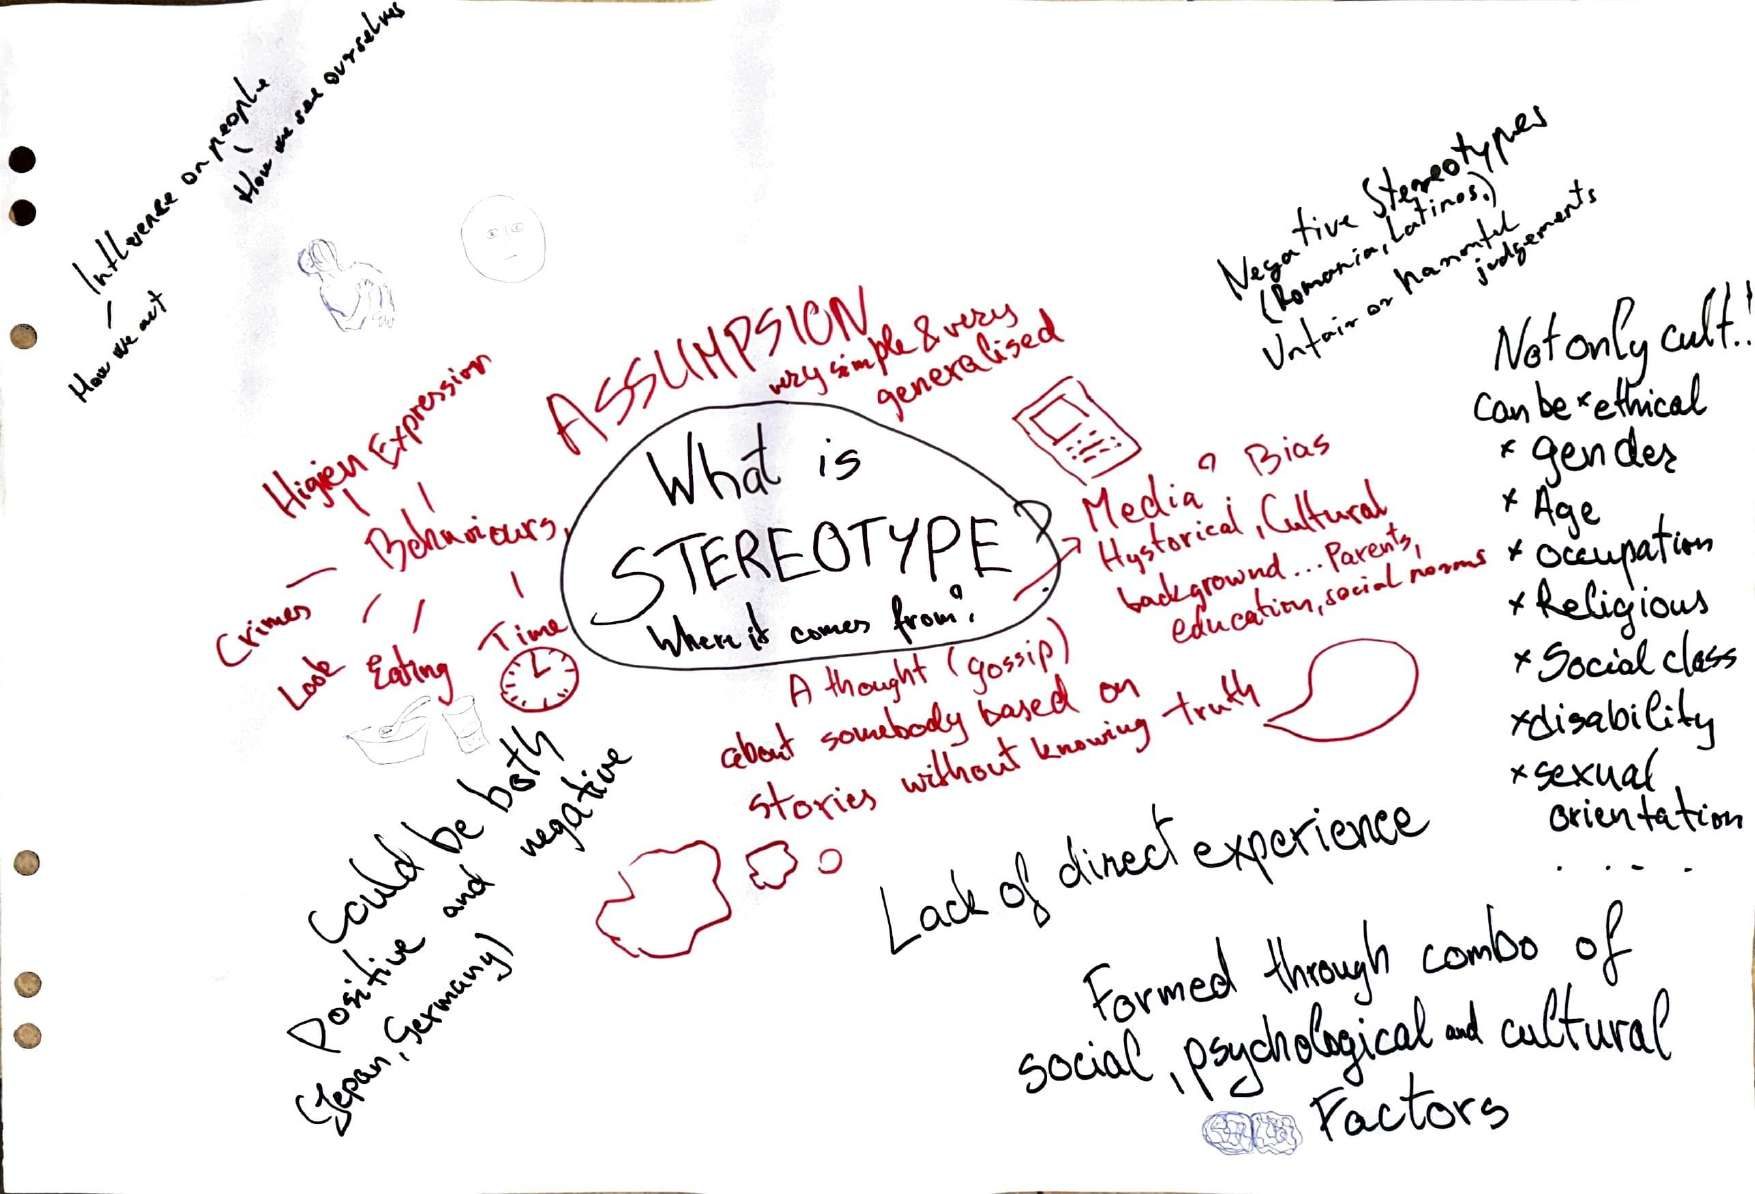 Influence on people
How we see ourselves
How we act
Negative Stereotypes
(Romania, Latinos.)
Unfair or harmful
judgements
Not only cult!!
can be × ethical
× gender
× Age
× occupation
× Religious
× Social class
× disability
× sexual
orientation
. . . .
ASSUMPSION
very simple & very
generalised
What is
STEREOTYPE?
Where it comes from?
Higien Expression
Behaviours,
Crimes
Look
Eating
Time
Media ? Bias
Hystorical, Cultural
background... Parents,
education, social norms
A thought (gossip)
about somebody based on
stories without knowing truth
Could be both
positive and negative
(Jepan, Germany)
Lack of direct experience
Formed through combo of
social, psychological and cultural
Factors